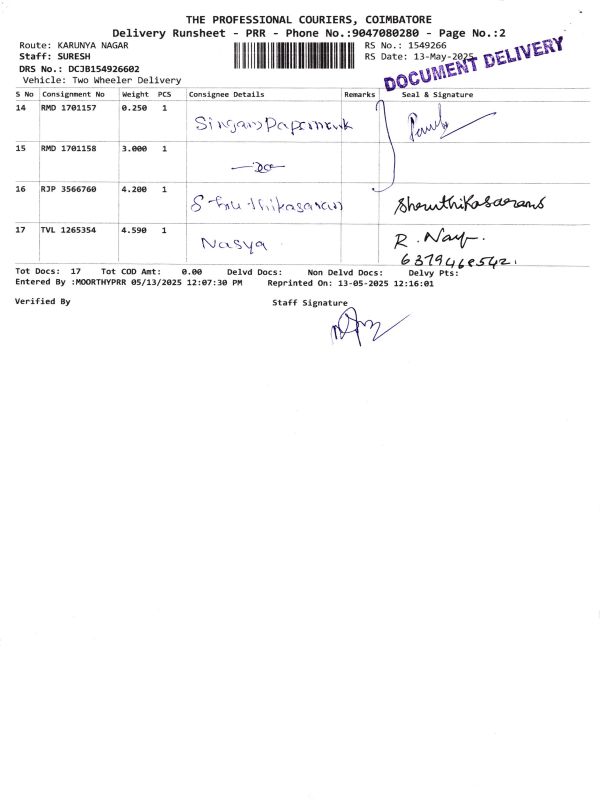 THE PROFESSIONAL COURIERS, COIMBATORE
Delivery Runsheet - PRR - Phone No.:9047080280 - Page No.:2
Route: KARUNYA NAGAR RS No.: 1549266
Staff: SURESH RS Date: 13-May-2025
DRS No.: DCJB154926602
Vehicle: Two Wheeler Delivery
DOCUMENT DELIVERY
S No Consignment No Weight PCS Consignee Details Remarks Seal & Signature
14 RMD 1701157 0.250 1
15 RMD 1701158 3.000 1
16 RJP 3566760 4.200 1
17 TVL 1265354 4.590 1 Nasya R. Nay.
Tot Docs: 17 Tot COD Amt: 0.00 Delvd Docs: Non Delvd Docs: Delvy Pts:
Entered By :MOORTHYPRR 05/13/2025 12:07:30 PM Reprinted On: 13-05-2025 12:16:01
Verified By Staff Signature